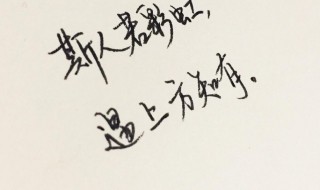 斯人若彩虹，
遇上方知有。